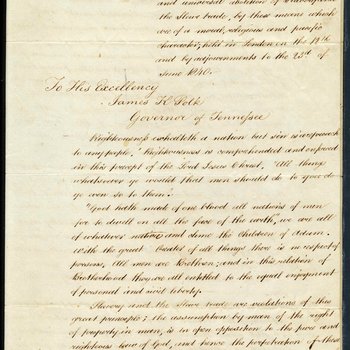 and universal abolition of
the slave trade, by those means which
are of a moral, religious and pacific
character; held in London on the 12th
and by adjournments to the 23rd of
June 1840.
To His Excellency
James K Polk
Governor of Tennessee
Righteousness exalteth a nation but sin is a reproach
to any people. Righteousness is comprehended and enjoined
in this precept of the Lord Jesus Christ. "All things
whatsoever ye would that men should do to you do
ye even so to them".
"God hath made of one blood all nations of men
for to dwell on all the face of the earth", we are all
of whatever nation and clime the children of Adam.
With the great Creator of all things there is no respect of
persons, All men are Brethren; and in this relation of
Brotherhood they are all entitled to the equal enjoyment
of personal and civil liberty.
Slavery and the slave trade are violations of this
great principle; the assumption by man of the right
of property in man, is in open opposition to the pure and
righteous law of God, and hence the perpetration of these